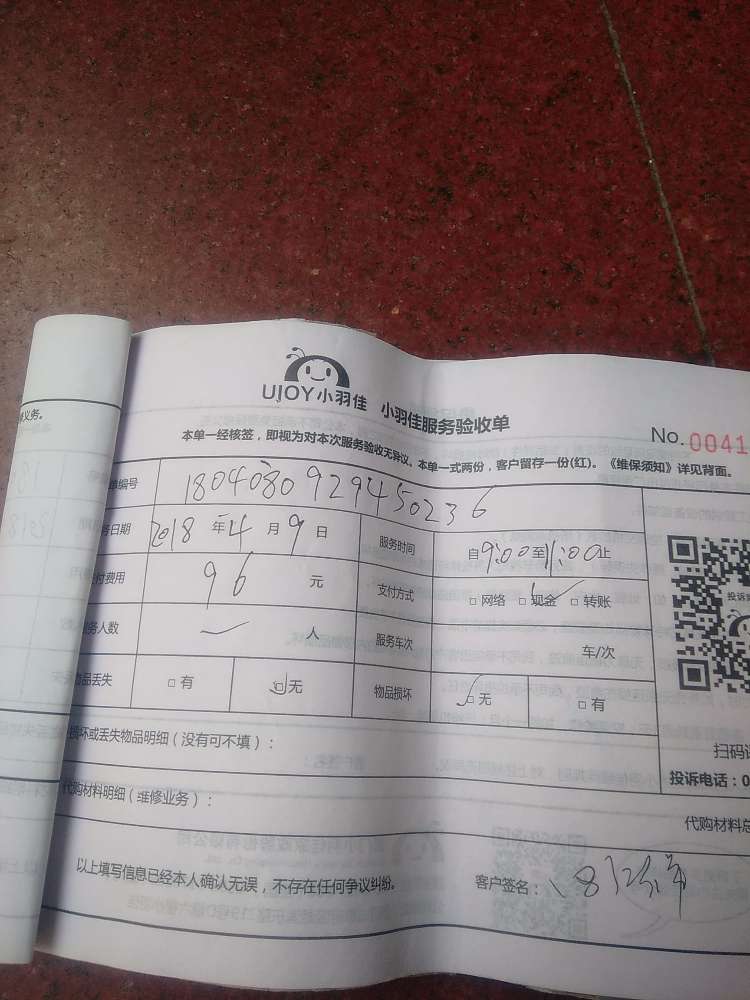 UJOY小羽佳 小羽佳服务验收单
No.0041
本单一经核签，即视为对本次服务验收无异议。本单一式两份，客户留存一份(红)。《维保须知》详见背面。
义务。
单编号 1804080929450236
务日期 2018 年 4 月 9 日 服务时间 自 9:00 至 11:00 止
付费用 96 元 支付方式 □ 网络 □ 现金 □ 转账
务人数 一 人 服务车次 车/次
物品丢失 □ 有 □ 无 物品损坏 □ 无 □ 有
投诉
损坏或丢失物品明细（没有可不填）：
扫码
投诉电话：0
代购材料明细（维修业务）：
代购材料总
以上填写信息已经本人确认无误，不存在任何争议纠纷。 客户签名：